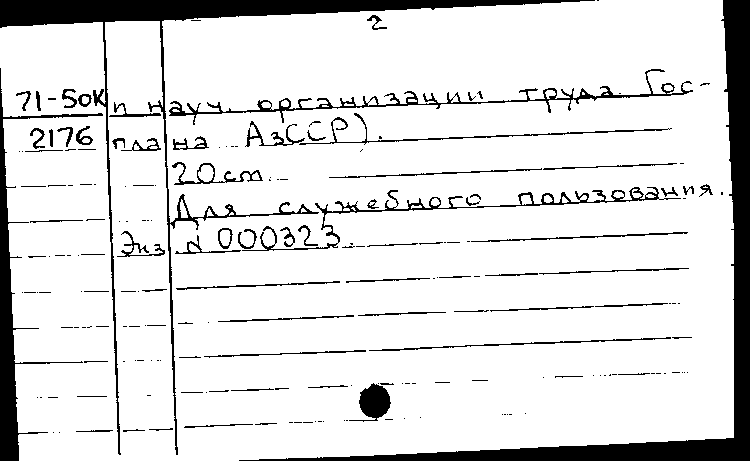 2
71-50К и науч. организации труда Гос-
2176 плана АзССР).
20 см.
Для служебного пользования.
Экз. № 000323.